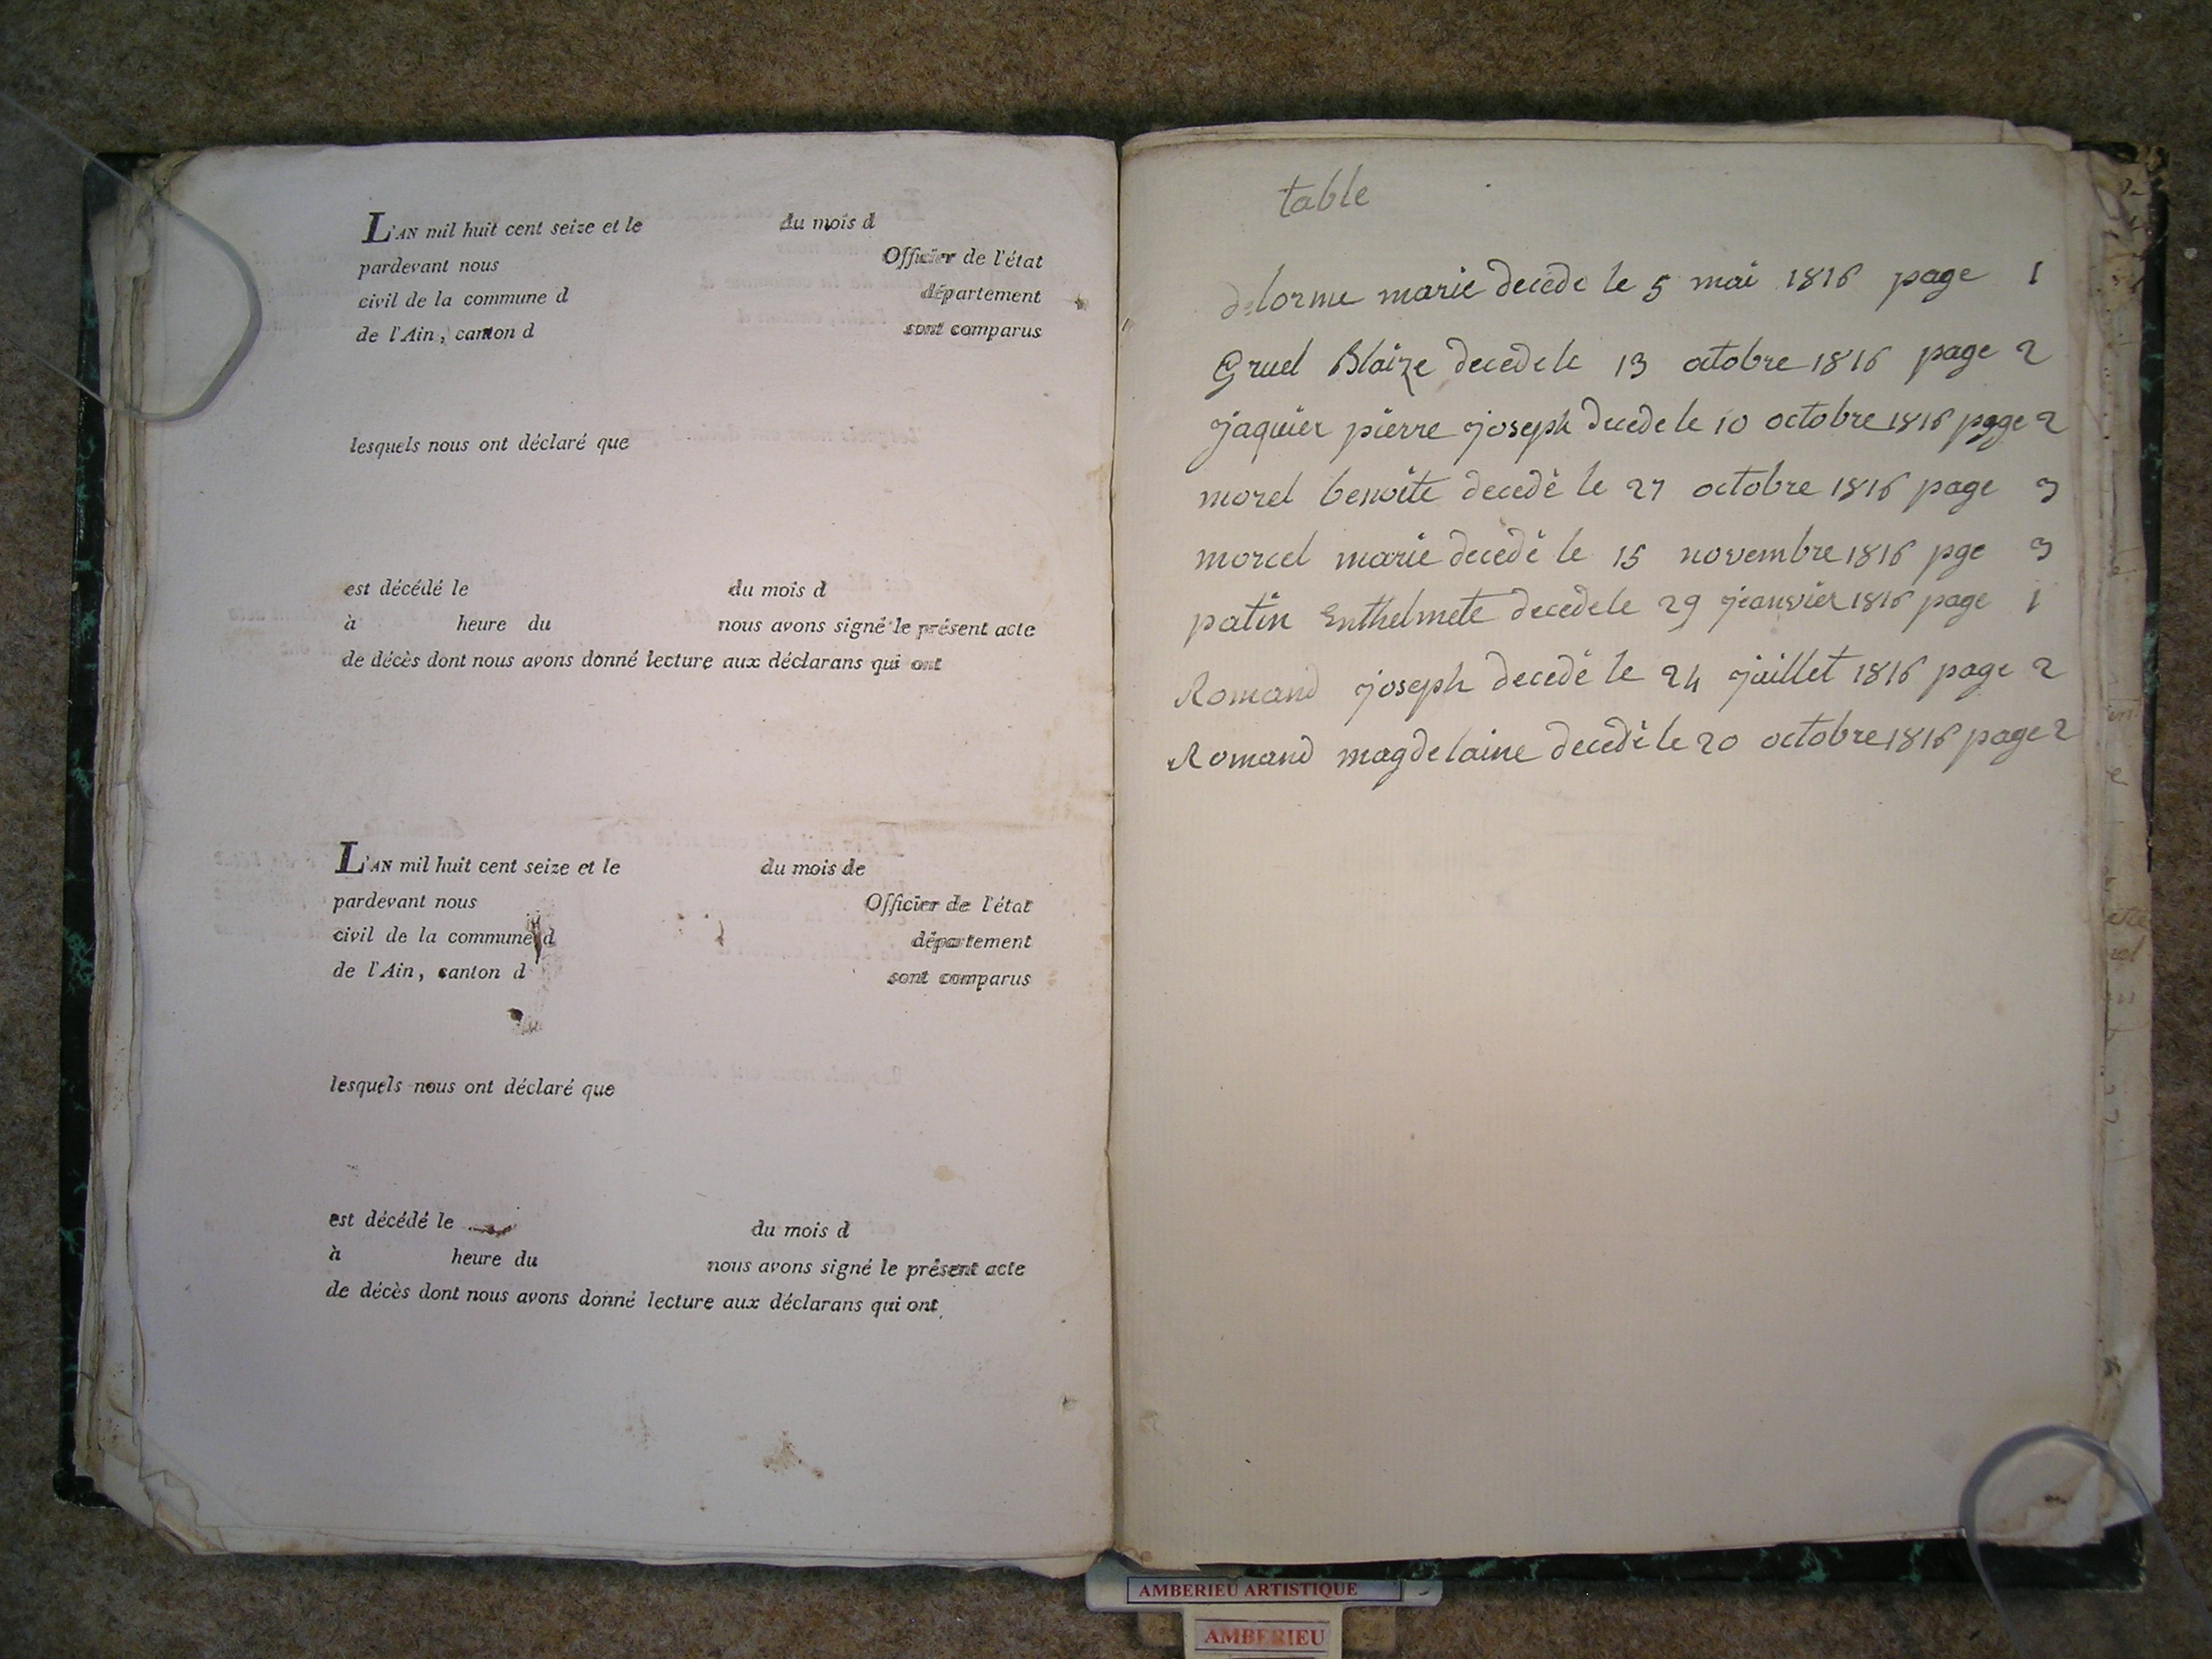 L'AN mil huit cent seize et le du mois d
pardevant nous Officier de l'état
civil de la commune d département
de l'Ain, canton d sont comparus
lesquels nous ont déclaré que
est décédé le du mois d
à heure du nous avons signé le présent acte
de décès dont nous avons donné lecture aux déclarans qui ont
L'AN mil huit cent seize et le du mois de
pardevant nous Officier de l'état
civil de la commune d département
de l'Ain, canton d sont comparus
lesquels nous ont déclaré que
est décédé le du mois d
à heure du nous avons signé le présent acte
de décès dont nous avons donné lecture aux déclarans qui ont
table
delorme marie decede le 5 mai 1816 page 1
Gruel Blaize decede le 13 octobre 1816 page 2
jaquier pierre joseph decede le 10 octobre 1816 page 2
morel benoite decedé le 27 octobre 1816 page 3
morcel marie decedé le 15 novembre 1816 pge 3
patin Enthelmete decede le 29 jeanvier 1816 page 1
Romand joseph decedé le 24 juillet 1816 page 2
Romand magdelaine decedé le 20 octobre 1816 page 2
AMBERIEU ARTISTIQUE
AMBERIEU